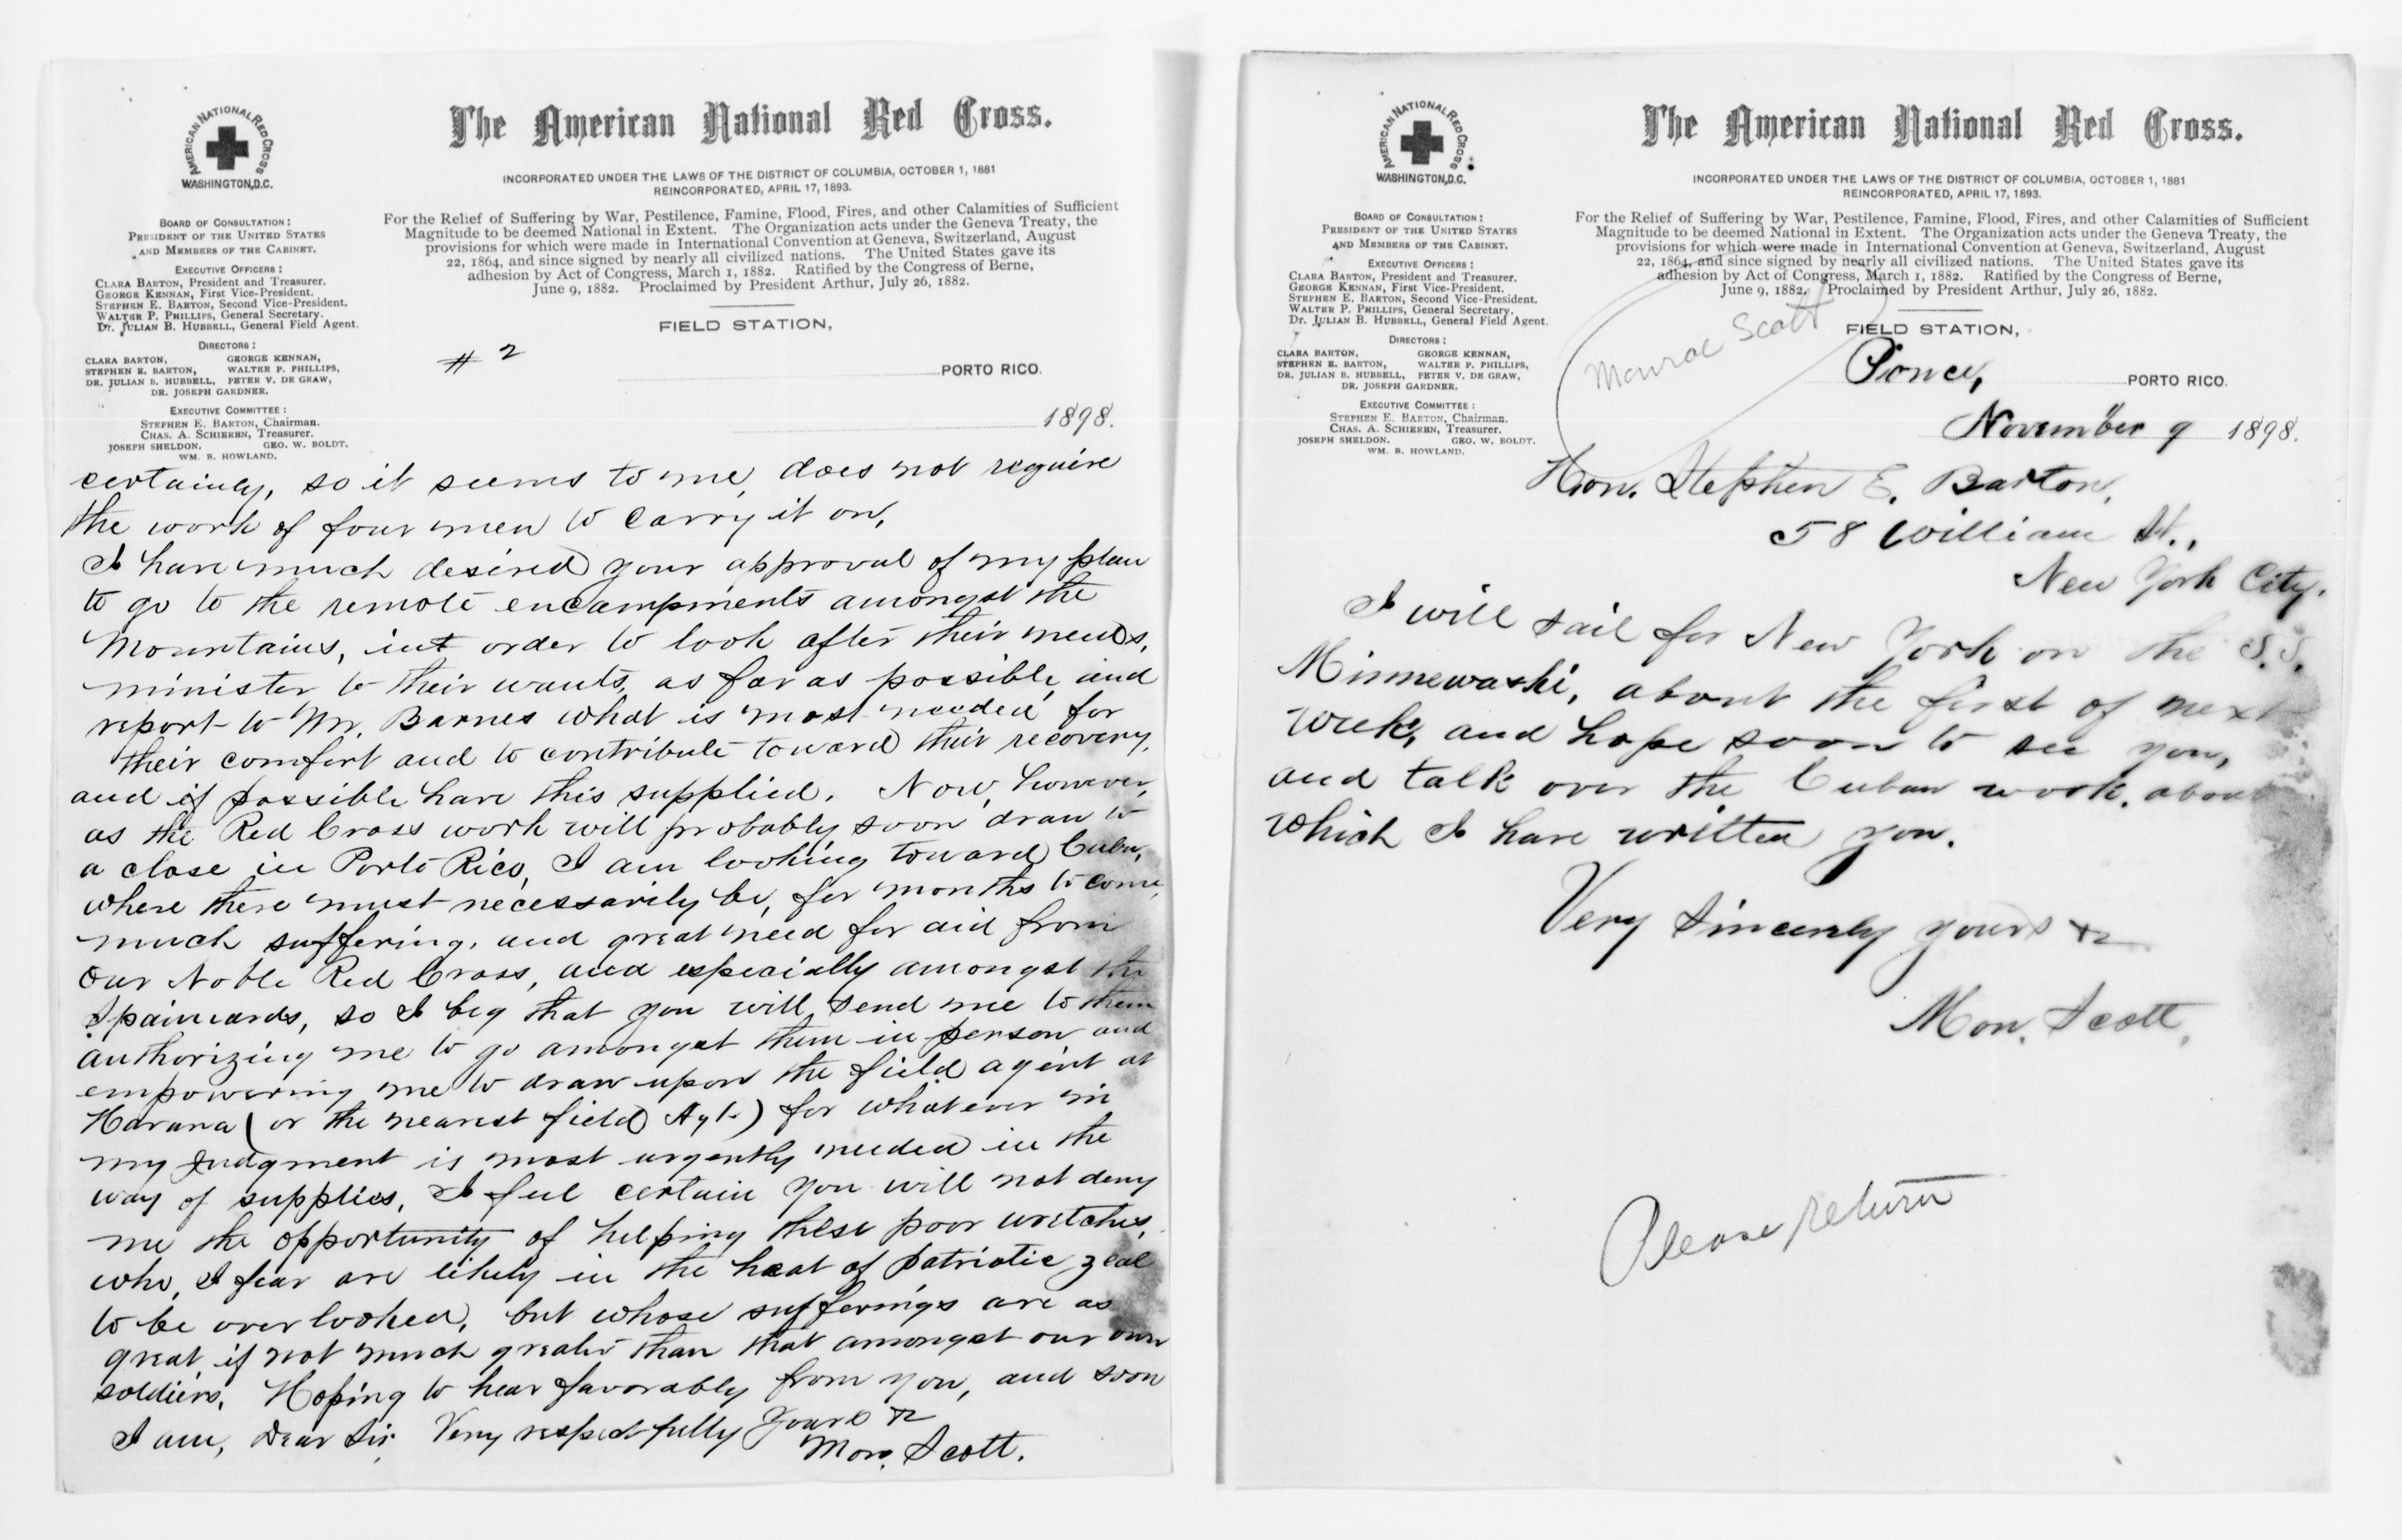 AMERICAN NATIONAL RED CROSS
WASHINGTON, D.C.
The American National Red Cross.
INCORPORATED UNDER THE LAWS OF THE DISTRICT OF COLUMBIA, OCTOBER 1, 1881
REINCORPORATED, APRIL 17, 1893.
For the Relief of Suffering by War, Pestilence, Famine, Flood, Fires, and other Calamities of Sufficient
Magnitude to be deemed National in Extent. The Organization acts under the Geneva Treaty, the
provisions for which were made in International Convention at Geneva, Switzerland, August
22, 1864, and since signed by nearly all civilized nations. The United States gave its
adhesion by Act of Congress, March 1, 1882. Ratified by the Congress of Berne,
June 9, 1882. Proclaimed by President Arthur, July 26, 1882.
BOARD OF CONSULTATION:
PRESIDENT OF THE UNITED STATES
AND MEMBERS OF THE CABINET.
EXECUTIVE OFFICERS:
CLARA BARTON, President and Treasurer.
GEORGE KENNAN, First Vice-President.
STEPHEN E. BARTON, Second Vice-President.
WALTER P. PHILLIPS, General Secretary.
Dr. JULIAN B. HUBBELL, General Field Agent.
DIRECTORS:
CLARA BARTON, GEORGE KENNAN,
STEPHEN E. BARTON, WALTER P. PHILLIPS,
DR. JULIAN B. HUBBELL, PETER V. DE GRAW,
DR. JOSEPH GARDNER.
EXECUTIVE COMMITTEE:
STEPHEN E. BARTON, Chairman.
CHAS. A. SCHIEREN, Treasurer.
JOSEPH SHELDON. GEO. W. BOLDT.
WM. B. HOWLAND.
FIELD STATION,
# 2
PORTO RICO.
1898.
certainly, so it seems to me, does not require
the work of four men to carry it on.
I have much desired your approval of my plan
to go to the remote encampments amongst the
Mountains, int order to look after their needs,
minister to their wants, as far as possible, and
report to Mr. Barnes what is most needed for
their comfort and to contribute toward their recovery,
and if possible have this supplied. Now, however,
as the Red Cross work will probably soon draw to
a close in Porto Rico, I am looking toward Cuba,
where there must necessarily be, for months to come,
much suffering, and great need for aid from
Our Noble Red Cross, and especially amongst the
Spainiards, so I beg that you will send me to them
authorizing me to go amongst them in person and
empowering me to draw upon the field agent at
Havana (or the nearest field Agt.) for whatever in
my judgment is most urgently needed in the
way of supplies. I feel certain you will not deny
me the opportunity of helping these poor wretches,
who, I fear are likely in the heat of patriotic zeal
to be overlooked, but whose sufferings are as
great if not much greater than that amongst our own
soldiers. Hoping to hear favorably from you, and soon
I am, Dear Sir, Very respectfully Yours &c
Mon. Scott.
AMERICAN NATIONAL RED CROSS
WASHINGTON, D.C.
The American National Red Cross.
INCORPORATED UNDER THE LAWS OF THE DISTRICT OF COLUMBIA, OCTOBER 1, 1881
REINCORPORATED, APRIL 17, 1893.
For the Relief of Suffering by War, Pestilence, Famine, Flood, Fires, and other Calamities of Sufficient
Magnitude to be deemed National in Extent. The Organization acts under the Geneva Treaty, the
provisions for which were made in International Convention at Geneva, Switzerland, August
22, 1864, and since signed by nearly all civilized nations. The United States gave its
adhesion by Act of Congress, March 1, 1882. Ratified by the Congress of Berne,
June 9, 1882. Proclaimed by President Arthur, July 26, 1882.
BOARD OF CONSULTATION:
PRESIDENT OF THE UNITED STATES
AND MEMBERS OF THE CABINET.
EXECUTIVE OFFICERS:
CLARA BARTON, President and Treasurer.
GEORGE KENNAN, First Vice-President.
STEPHEN E. BARTON, Second Vice-President.
WALTER P. PHILLIPS, General Secretary.
Dr. JULIAN B. HUBBELL, General Field Agent.
DIRECTORS:
CLARA BARTON, GEORGE KENNAN,
STEPHEN E. BARTON, WALTER P. PHILLIPS,
DR. JULIAN B. HUBBELL, PETER V. DE GRAW,
DR. JOSEPH GARDNER.
EXECUTIVE COMMITTEE:
STEPHEN E. BARTON, Chairman.
CHAS. A. SCHIEREN, Treasurer.
JOSEPH SHELDON. GEO. W. BOLDT.
WM. B. HOWLAND.
Monroe Scott
FIELD STATION,
Ponce, PORTO RICO.
November 9 1898.
Hon. Stephen E. Barton,
58 William St.,
New York City.
I will sail for New York on the S.S.
Minnewaski, about the first of next
week, and hope soon to see you,
and talk over the Cuban work, about
which I have written you.
Very Sincerely yours &c
Mon. Scott,
Please return